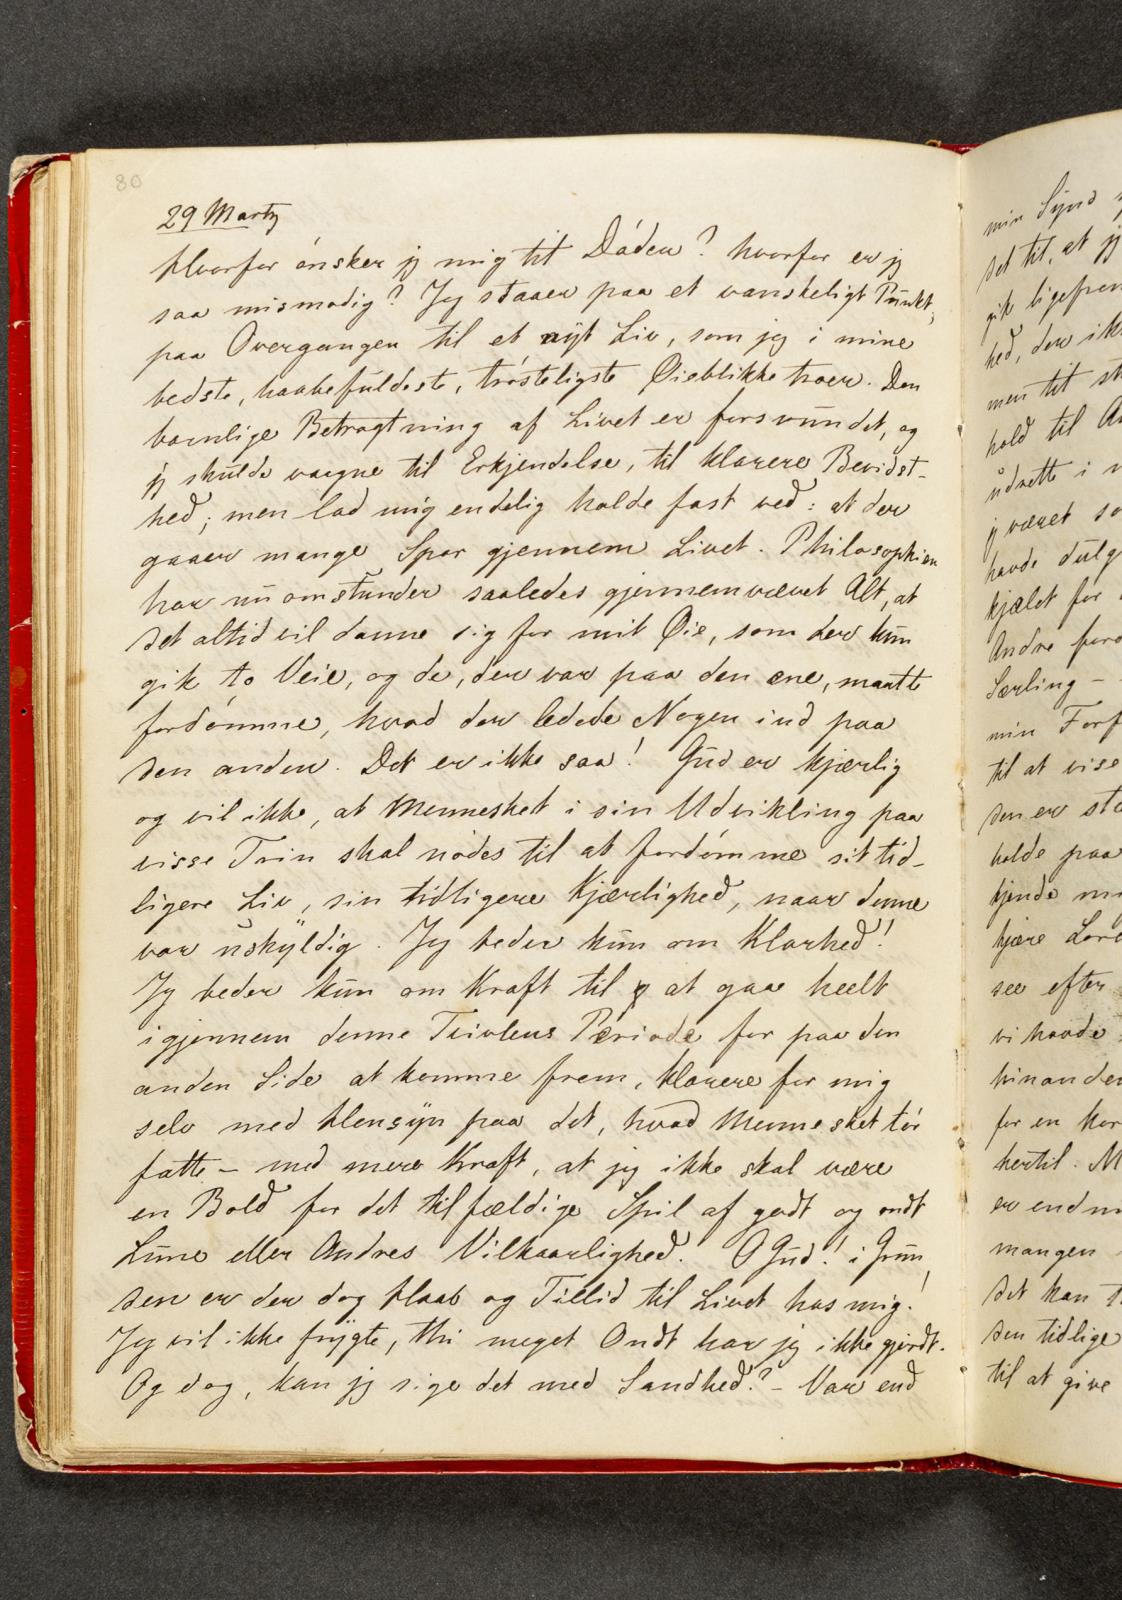 80
29 Marty
Hvorfor ønsker jeg mig til Døden? hvorfor er jeg
saa mismodig? Jeg staaer paa et vanskeligt Punkt,
paa Overgangen til et nyt Liv, som jeg i mine
bedste, haabefuldeste, trøsteligste Øieblikke troer. Den
barnlige Betragtning af Livet er forsvundet, og
jeg skulde vaagne til Erkjendelse, til klarere Bevidst-
hed; men lad mig endelig holde fast ved: at der
gaaer mange Spor gjennem Livet. Philosophien
har nu omstunder saaledes gjennemvævet Alt, at
det altid vil danne sig for mit Øie, som der kun
gik to Veie, og de, der var paa den ene, maatte
fordømme, hvad der ledede Nogen ind paa
den anden. Det er ikke saa! Gud er kjærlig
og vil ikke, at Mennesket i sin Udvikling paa
visse Trin skal nødes til at fordømme sit tid-
ligere Liv, sin tidligere Kjærlighed, naar denne
var uskyldig. Jeg beder kun om Klarhed!
Jeg beder kun om Kraft til at gaae heelt
igjennem denne Tvivlens Periode for paa den
anden Side at komme frem, klarere for mig
selv med Hensyn paa det, hvad Mennesket tør
fatte – med mere Kraft, at jeg ikke skal være
en Bold for det tilfældige Spil af godt og ondt
Lune eller Andres Vilkaarlighed. O Gud! i Grun
den er der dog Haab og Tillid til Livet hos mig!
Jeg vil ikke frygte, thi meget Ondt har jeg ikke gjordt.
Og dog, kan jeg sige det med Sandhed? – Var end
min Synd
det til, at jeg
gik ligefrem
hed, der
men til
hold til
udrette i
jeg været
havde
kjælet for
Andre
Særling –
min
til at vise
den er
holde paa
kjende
kjære
see efter
vi havde
hinanden
for en
hertil.
er
mangen
det kan
den tidlige
til at give